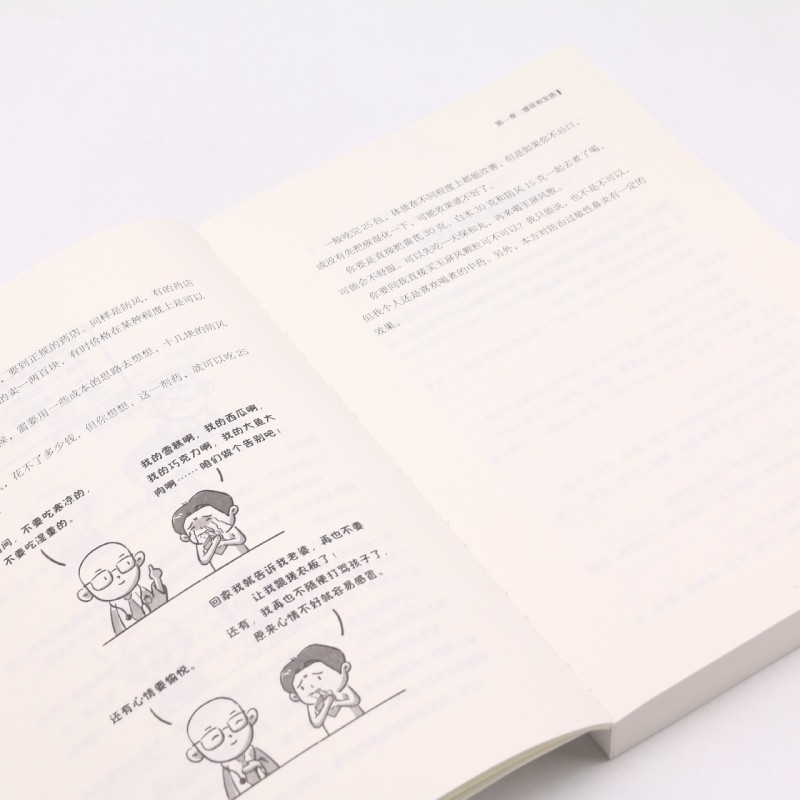 ，要到正规的药店。同样是防风，有的药店
的卖一两百块，有时价格在某种程度上是可以
，需要用一些成本的思路去想想，十几块的防风
，花不了多少钱，但你想想，这一剂药，就可以吃25
间，不要吃寒凉的，
不要吃湿重的。
我的雪糕啊，我的西瓜啊，
我的巧克力啊，我的大鱼大
肉啊……咱们做个告别吧！
回家我就告诉我老婆，再也不要
让我跪搓衣板了！
还有，我再也不随便打骂孩子了，
原来心情不好就容易感冒。
还有心情要愉悦。
第一章 感冒和发热
一般吃完25包，体质在不同程度上都能改善，但是如果你不忌口，
或没有先把痰湿化一下，可能效果就不好了。
你要是直接把黄芪30克、白术30克和防风15克一起去煮了喝，
可能会不舒服。可以先吃一天保和丸，再来喝玉屏风散。
你要问我直接买玉屏风颗粒可不可以？我只能说，也不是不可以，
但我个人还是喜欢喝煮的中药。另外，本方对防治过敏性鼻炎有一定的
效果。